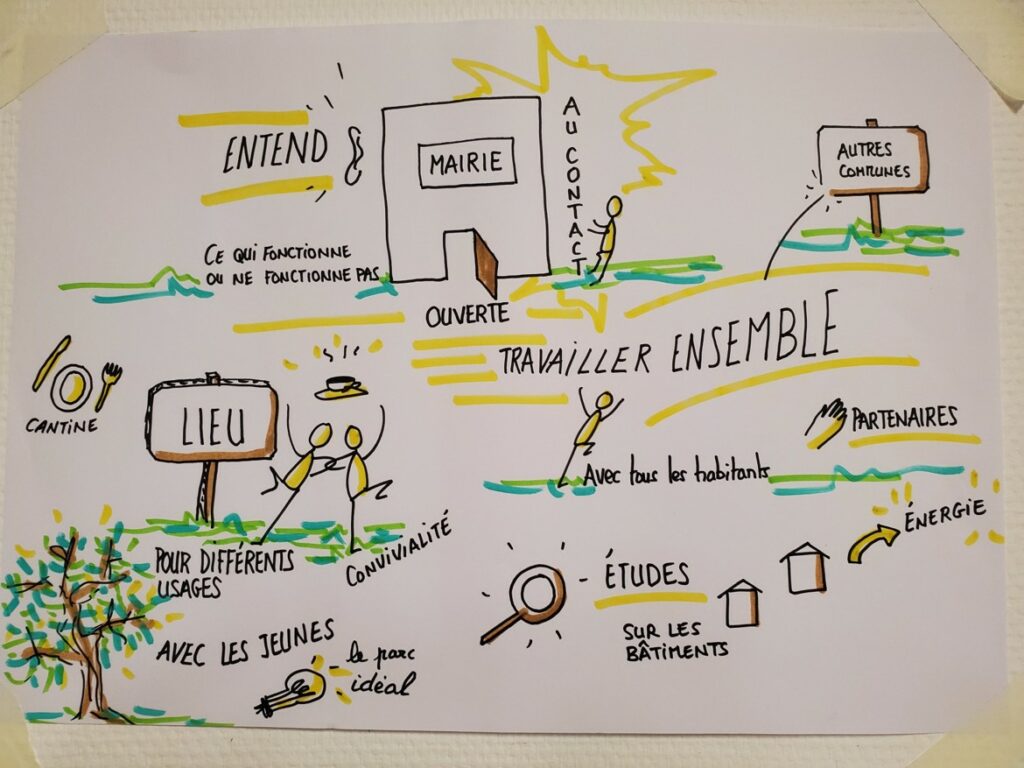 ENTEND
MAIRIE
AU CONTACT
AUTRES
COMMUNES
CE QUI FONCTIONNE
OU NE FONCTIONNE PAS
OUVERTE
TRAVAILLER ENSEMBLE
CANTINE
LIEU
PARTENAIRES
Avec tous les habitants
POUR DIFFÉRENTS
USAGES
CONVIVIALITÉ
ÉNERGIE
ÉTUDES
SUR LES
BÂTIMENTS
AVEC LES JEUNES
le parc
idéal